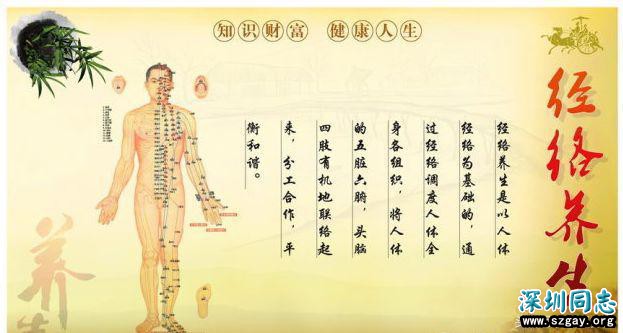 知识财富 健康人生
经络养生
经络养生是以人体
经络为基础的，通
过经络调度人体全
身各组织，将人体
的五脏六腑，头脑
四肢有机地联络起
来，分工合作，平
衡和谐。
养生
深圳同志
www.szgay.org